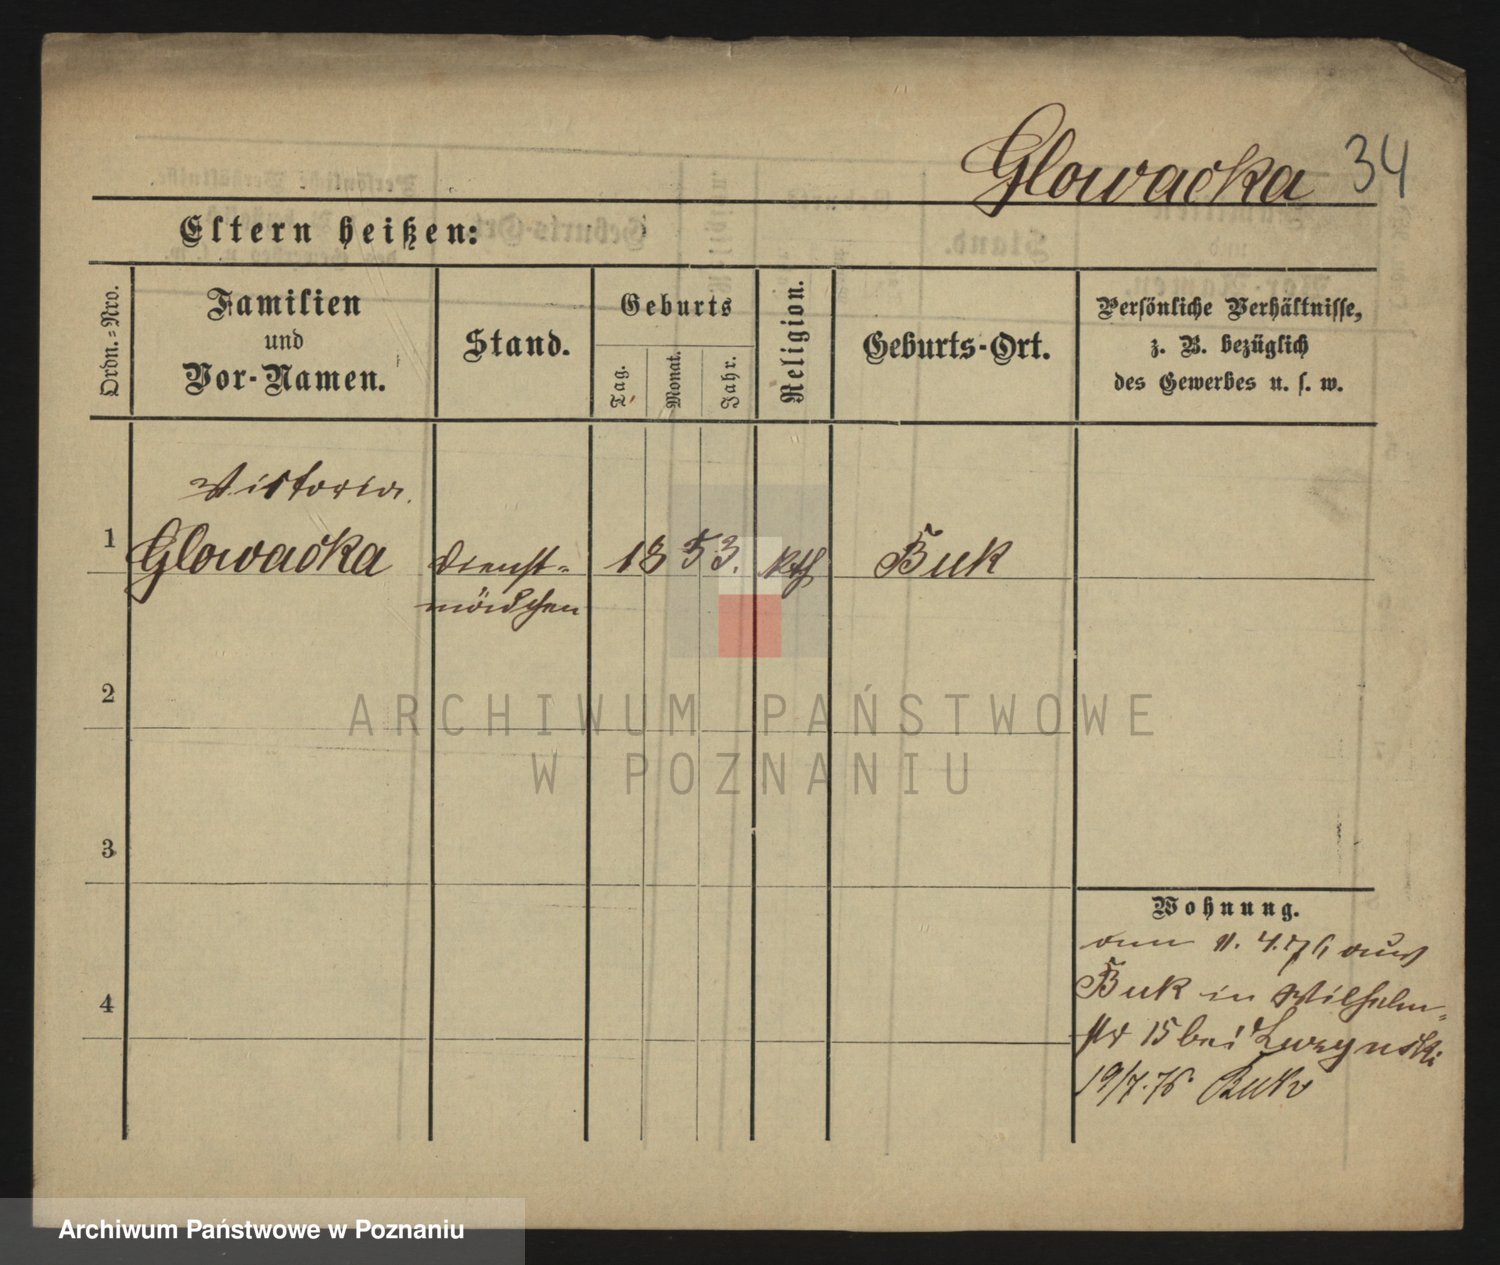 Glowacka 34
Eltern heißen:
Ordn.=Nro.
Familien
und
Vor-Namen.
Stand.
Geburts
Tag.
Monat.
Jahr.
Religion.
Geburts-Ort.
Persönliche Verhältnisse,
z. B. bezüglich
des Gewerbes u. s. w.
Victoria
1 Glowacka Dienst= 1853. kth Buk
mädchen
2
3
4
Wohnung.
am 11. 4. 76 aus
Buk in Wilhelm=
str 15 bei
19/7. 76
ARCHIWUM PAŃSTWOWE
W POZNANIU
Archiwum Państwowe w Poznaniu